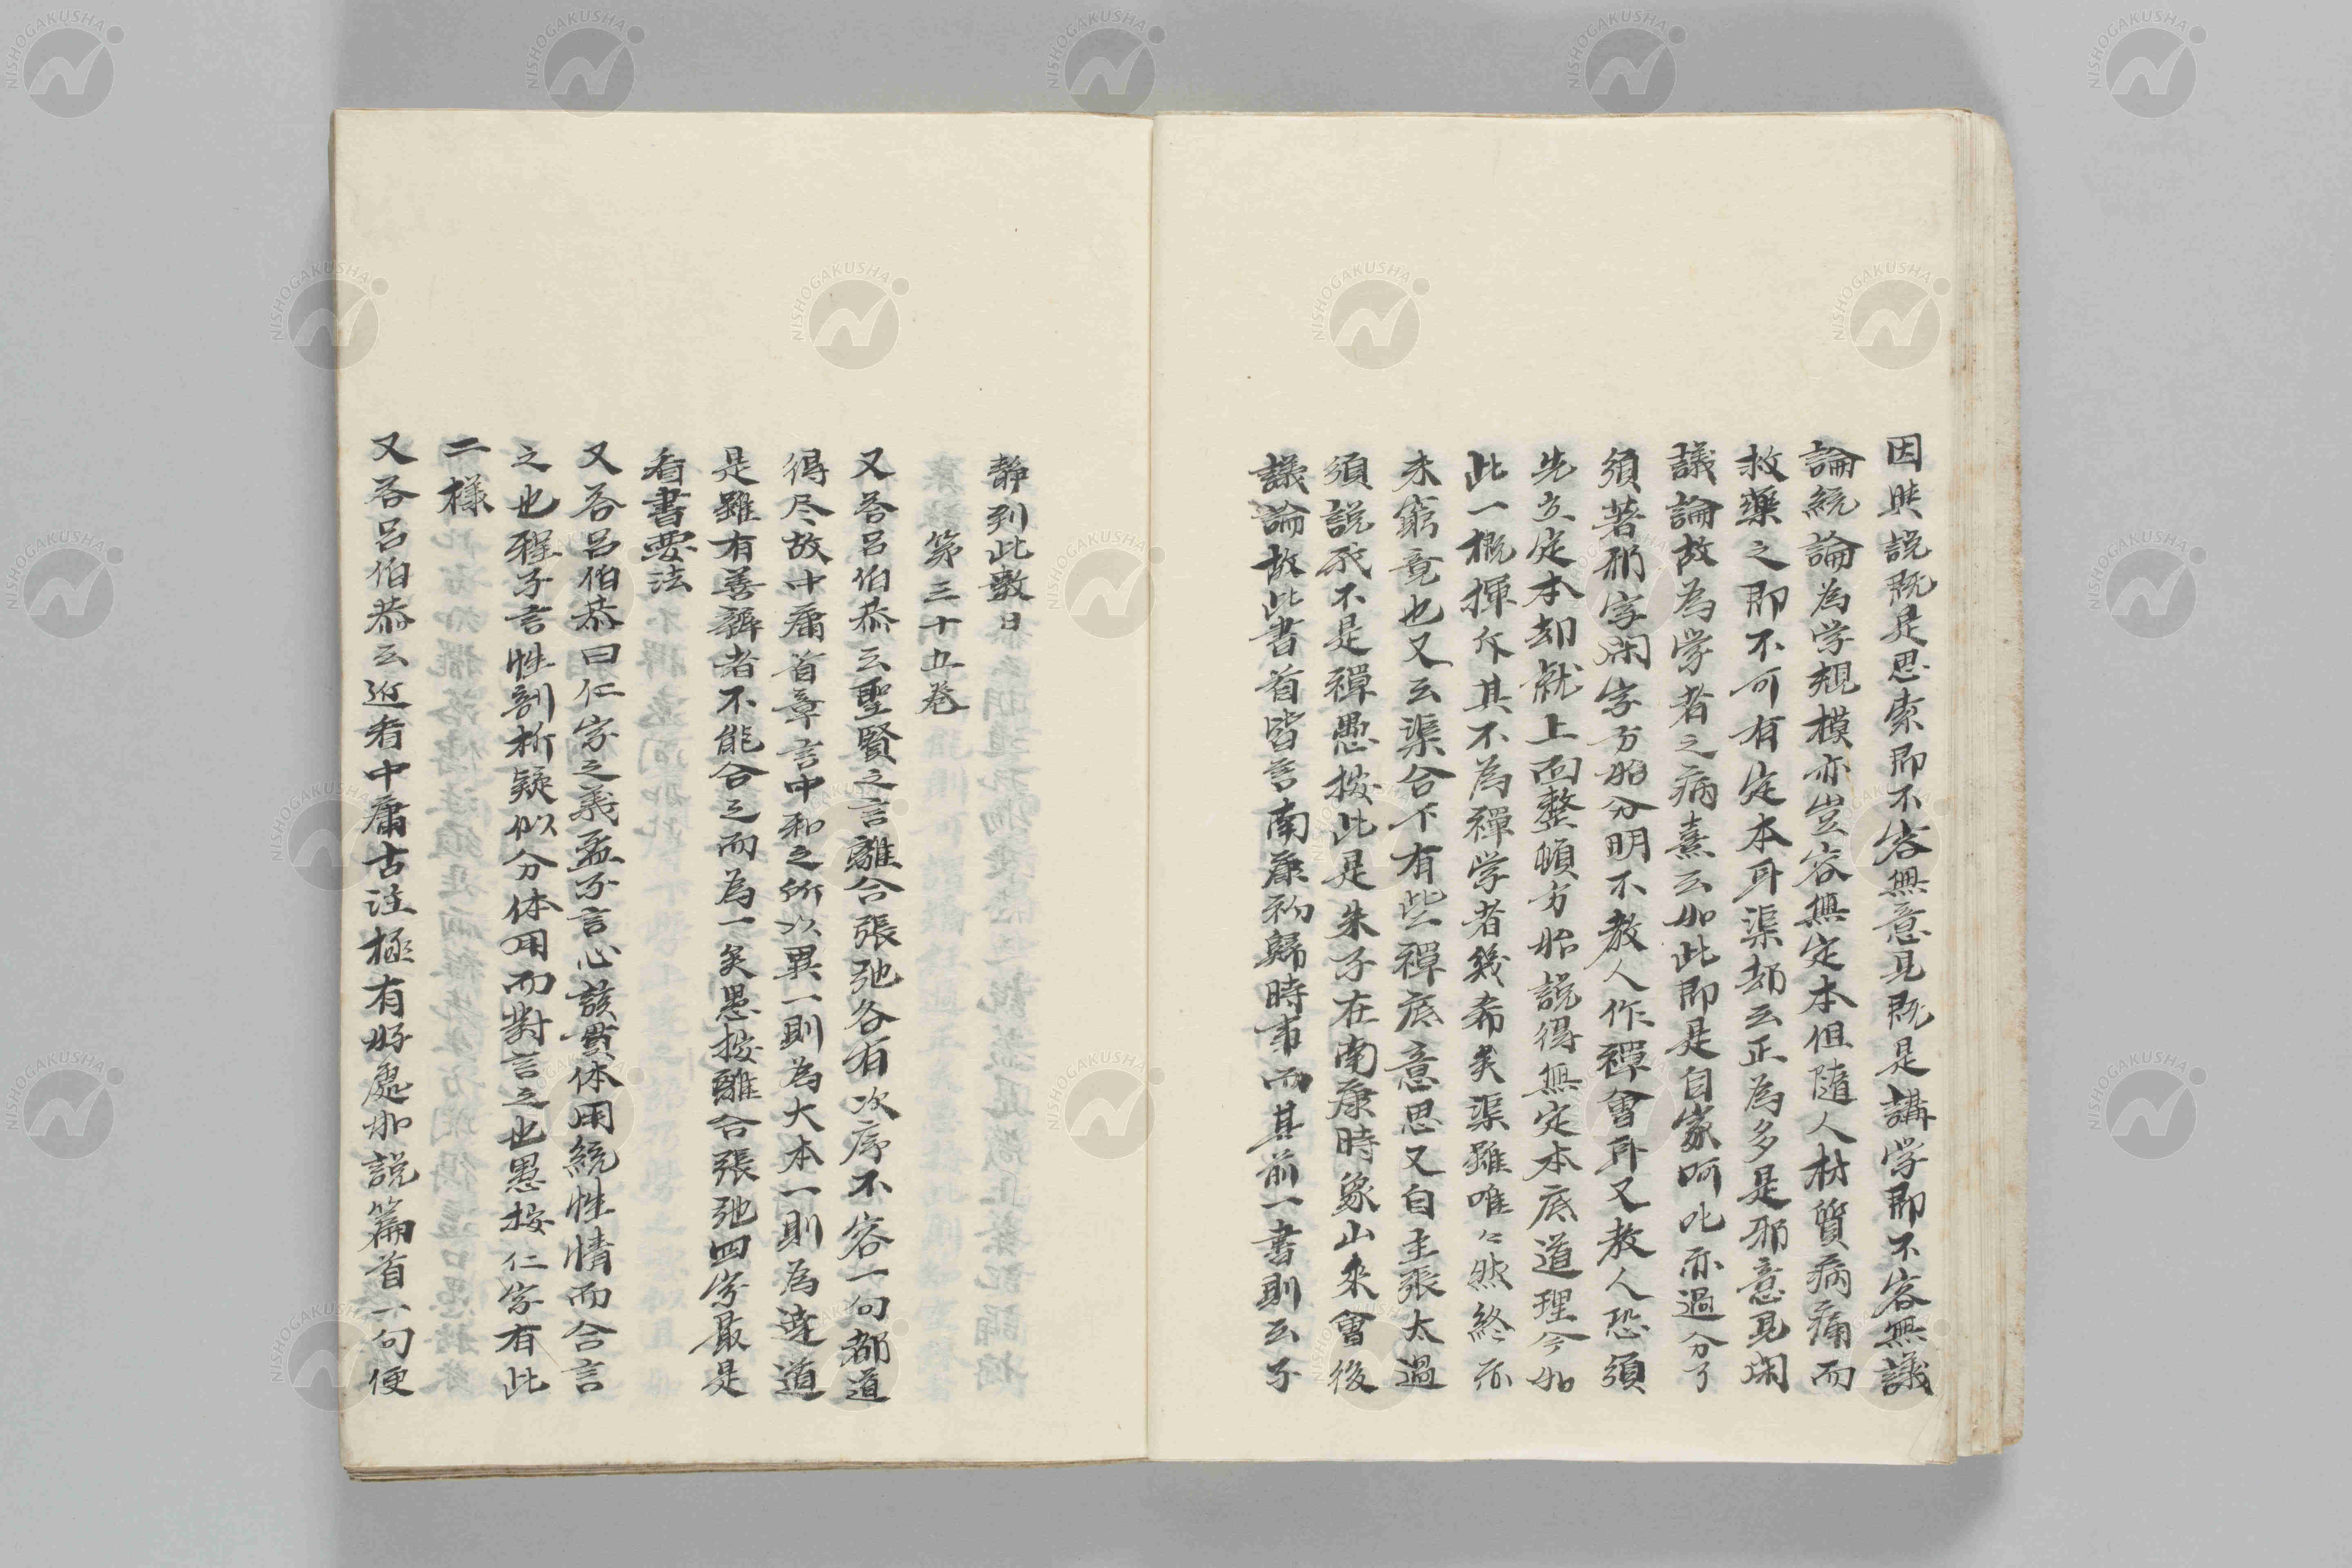 因与説既是思索即不容無意見既是講学即不容無議
論統論為学規模亦豈容無定本但隨人材質病痛而
救藥之即不可有定本耳渠却云正為多是邪意見閑
議論故為学者之病熹云如此即是自家呵叱亦過分了
須著邪字閑字方始分明不教人作禪會耳又教人恐須
先立定本却就上面整頓方始説得無定本底道理今如
此一概揮斥其不為禪学者幾希矣渠雖唯々然終亦
未窮竟也又云渠合下有些禪底意思又自主張太過
須説我不是禪愚按此是朱子在南康時象山來會後
議論故此書首皆言南康初歸時事而其前一書則云子
靜到此數日
第三十五卷
又答呂伯恭云聖賢之言離合張弛各有次序不容一句都道
得尽故中庸首章言中和之所以異一則為大本一則為達道
是雖有善辯者不能合之而為一矣愚按離合張弛四字最是
看書要法
又答呂伯恭曰仁字之義孟子言心該貫体用統性情而合言
之也程子言性剖析疑似分体用而對言之也愚按仁字有此
二樣
又答呂伯恭云近看中庸古注極有好處如説篇首一句便
NISHOGAKUSHA